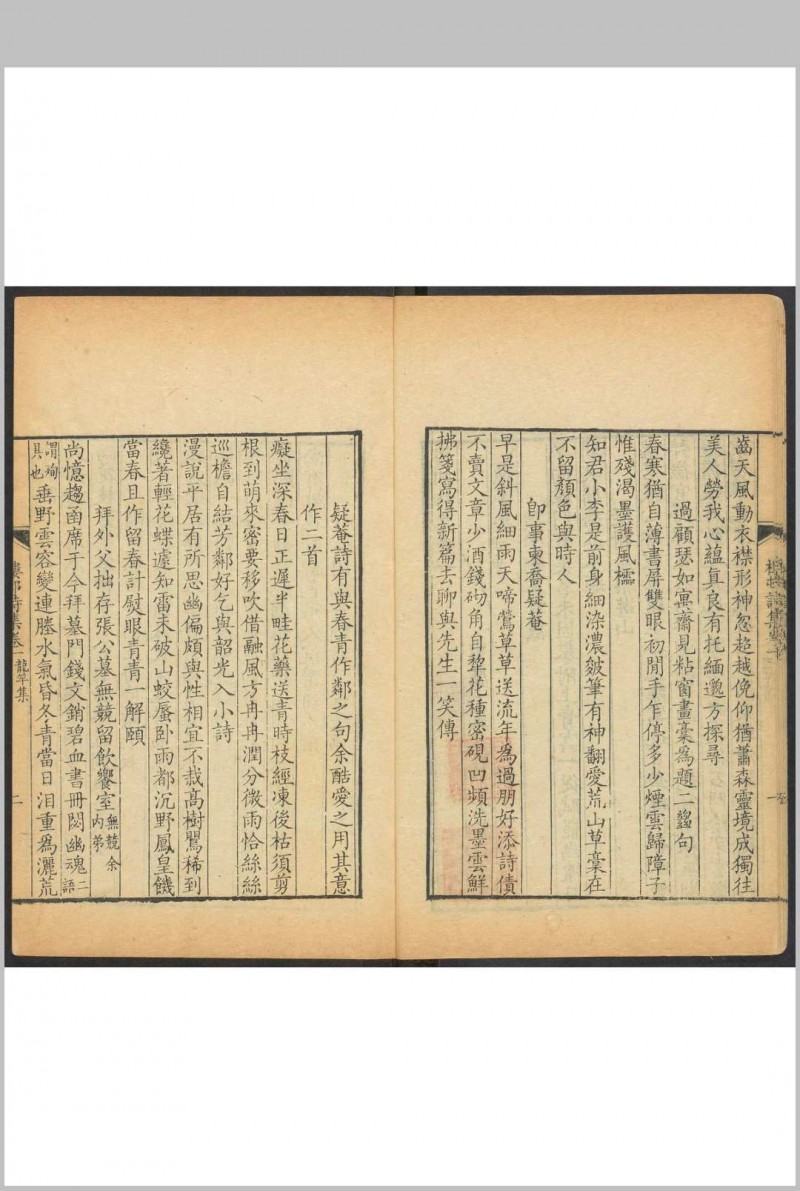 齒天風動衣襟形神忽超越俛仰猶蕭森靈境成獨往
美人勞我心蘊真良有托緬邈方探尋
過顧瑟如寓齋見粘窗畫稾為題二絕句
春寒猶自薄書屏雙眼初閒手乍停多少煙雲歸障子
惟殘渴墨護風櫺
知君小李是前身細染濃皴筆有神翻愛荒山草稾在
不留顏色與時人
卽事柬喬疑菴
早是斜風細雨天啼鶯草草送流年為過朋好添詩債
不賣文章少酒錢砌角自犂花種密硯凹頻洗墨雲鮮
拂箋寫得新篇去聊與先生一笑傳
一
疑菴詩有與春青作鄰之句余酷愛之用其意
作二首
癡坐深春日正遲半畦花藥送青時枝經凍後枯須剪
根到萌來密要移吹借融風方冉冉潤分微雨恰絲絲
巡檐自結芳鄰好乞與韶光入小詩
漫說平居有所思幽偏頗與性相宜不栽高樹鸎稀到
纔著輕花蝶遽知雷未破山蛟蜃卧雨都沉野鳳皇饑
當春且作留春計熨眼青青一解頤
拜外父拙存張公墓無競留飲饗室無競余內弟
尚憶趨函席于今拜墓門錢文銷碧血書冊閟幽魂二語
謂殉具也垂野雲容變連塍水氣昏冬青當日淚重為灑荒
詩集卷一龍竿集
二